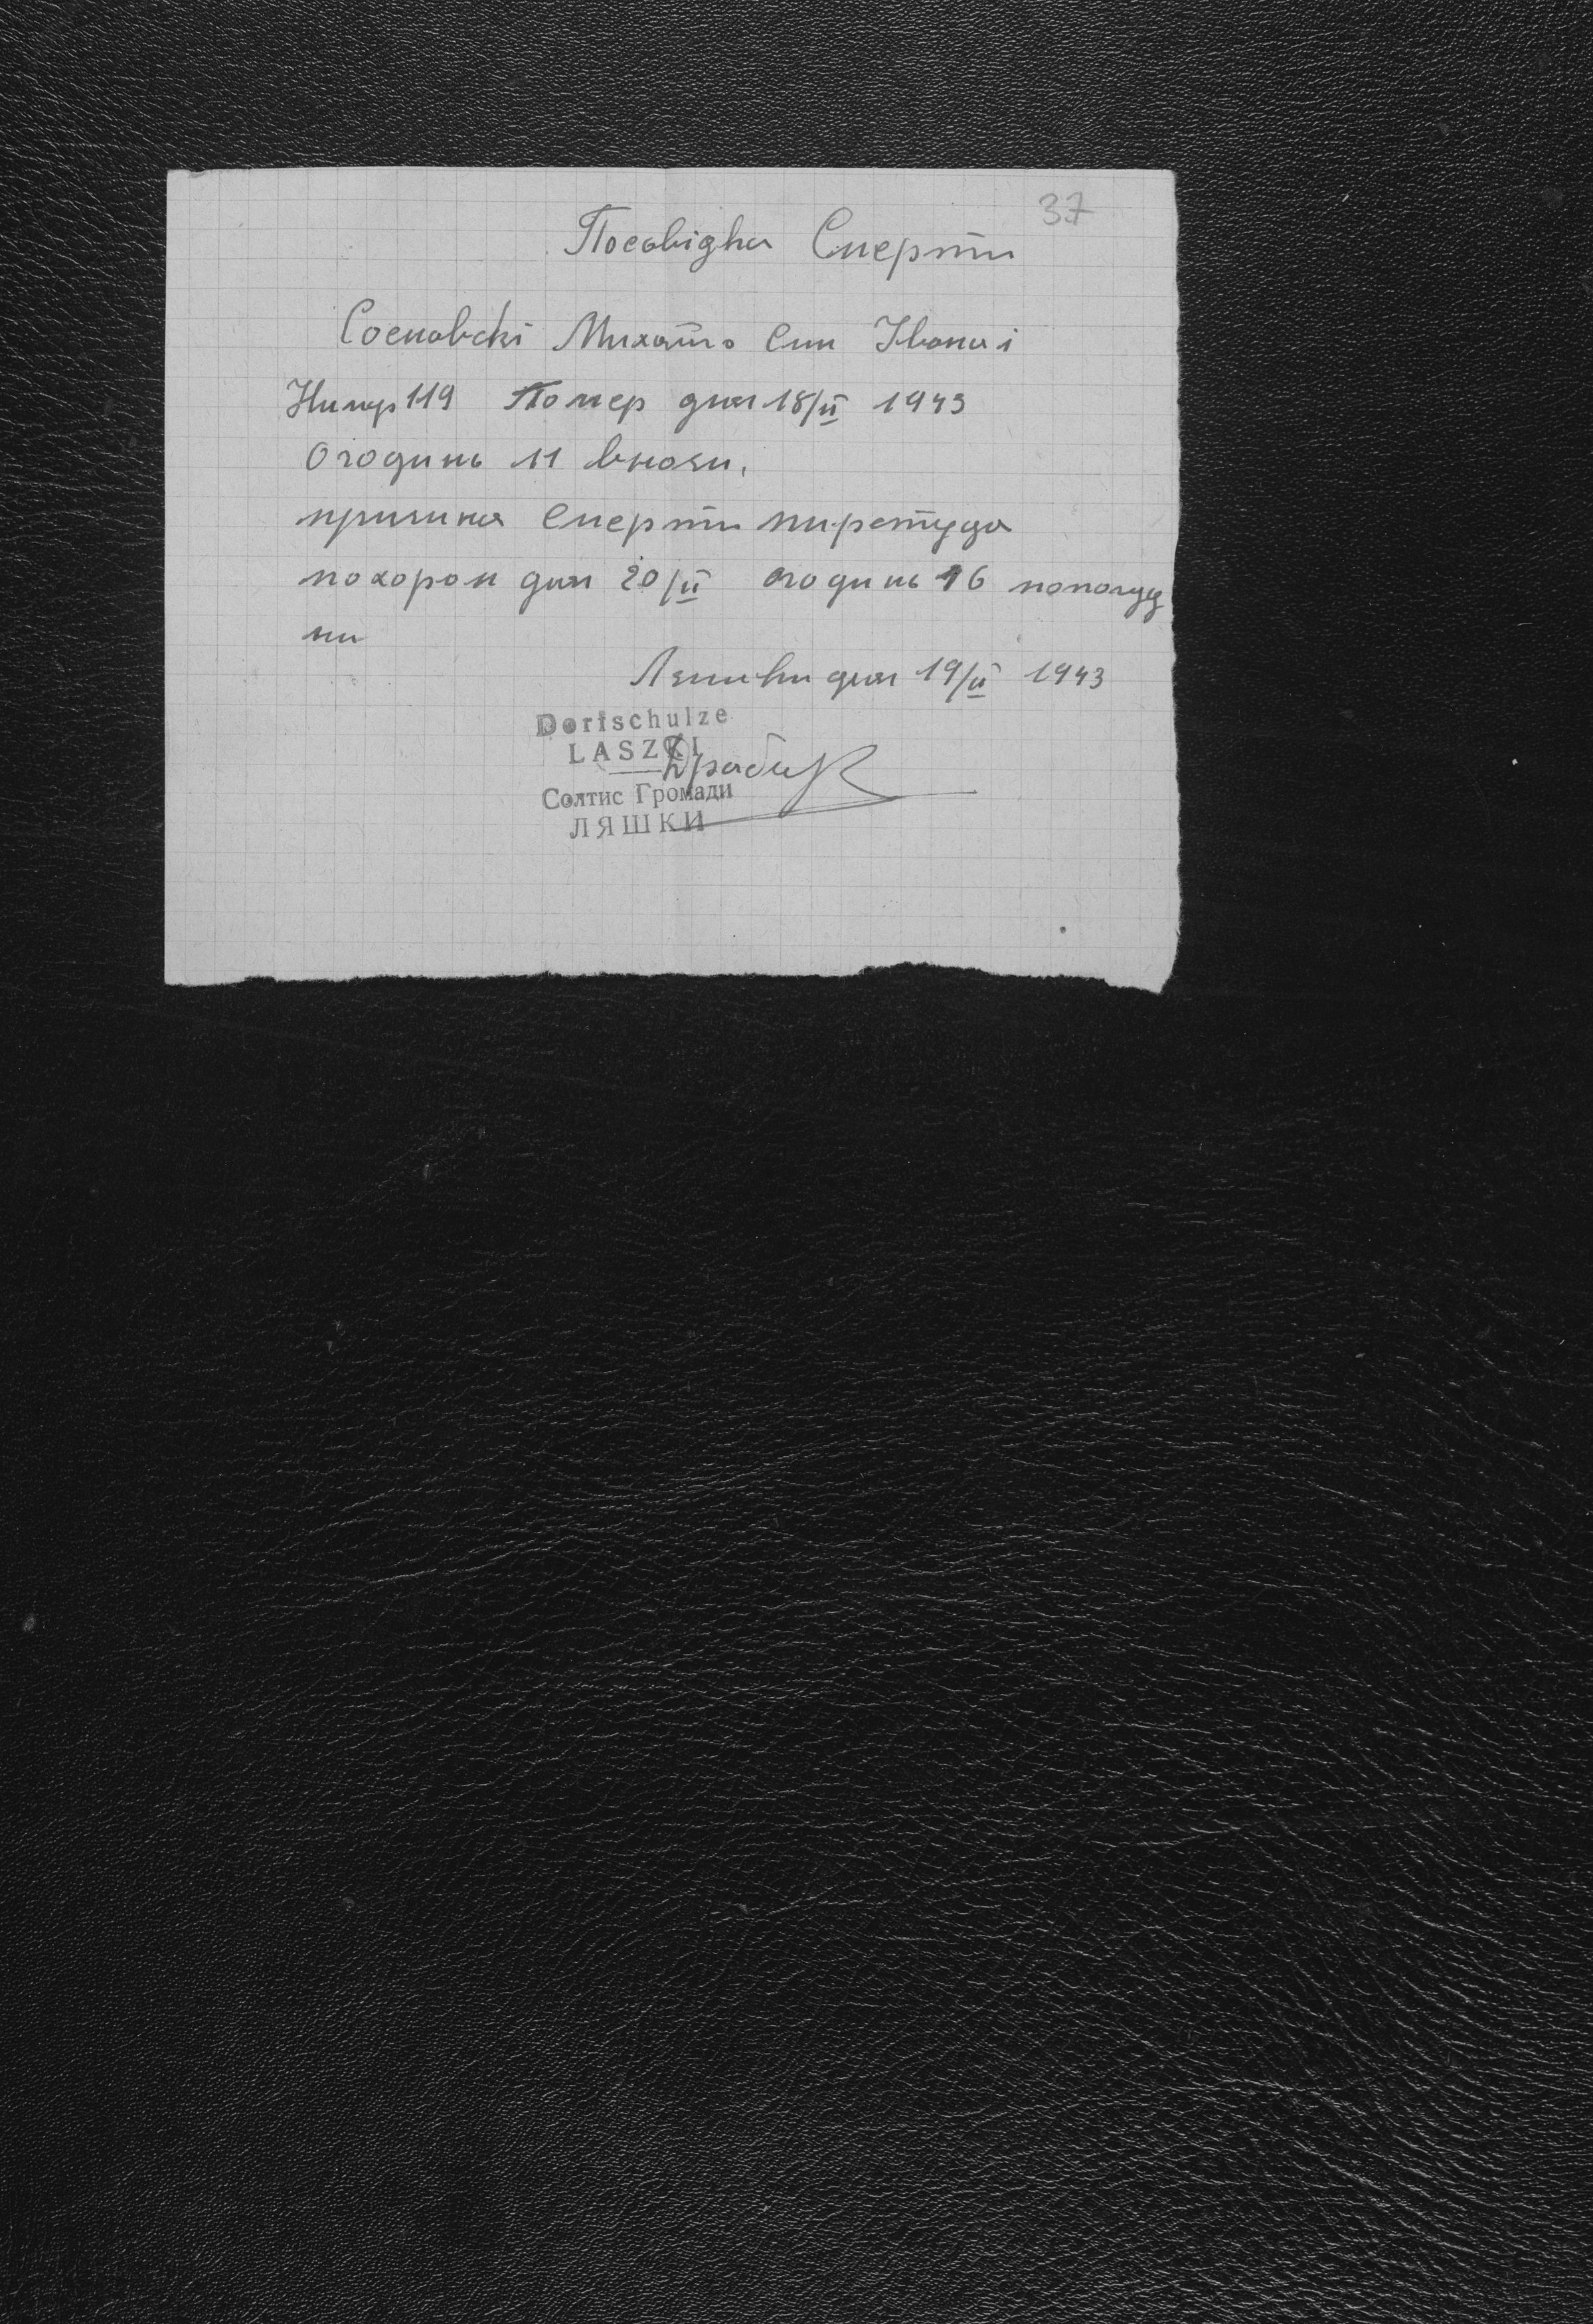 37
Посвідка Смерти
Сосновскі Михайло Син Івана і
Нумер 119 Помер дня 18/II 1943
Огодинь 11 вночи,
причина Смерти
похорон дня 20/II огодинь 16 пополуд
ни
Ляшки дня 19/II 1943
Dorfschulze
LASZKI
Солтис Громади
ЛЯШКИ